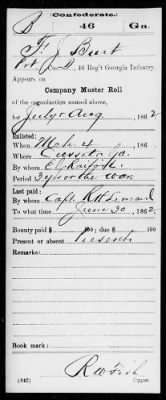 (Confederate.)
B 46 Ga.
F. J. Burt
Pvt, Co. D, 46 Reg't Georgia Infantry.
Appears on
Company Muster Roll
of the organization named above,
for July & Aug, 1862
Enlisted:
When Mch 4, 186
Where Cusseta Ga.
By whom
Period 3 yrs or the War
Last paid:
By whom Capt. R H
To what time June 30, 1862.
Bounty paid $ 100; due $ 100
Present or absent Present
Remarks:
Book mark:
(642) Copyist.